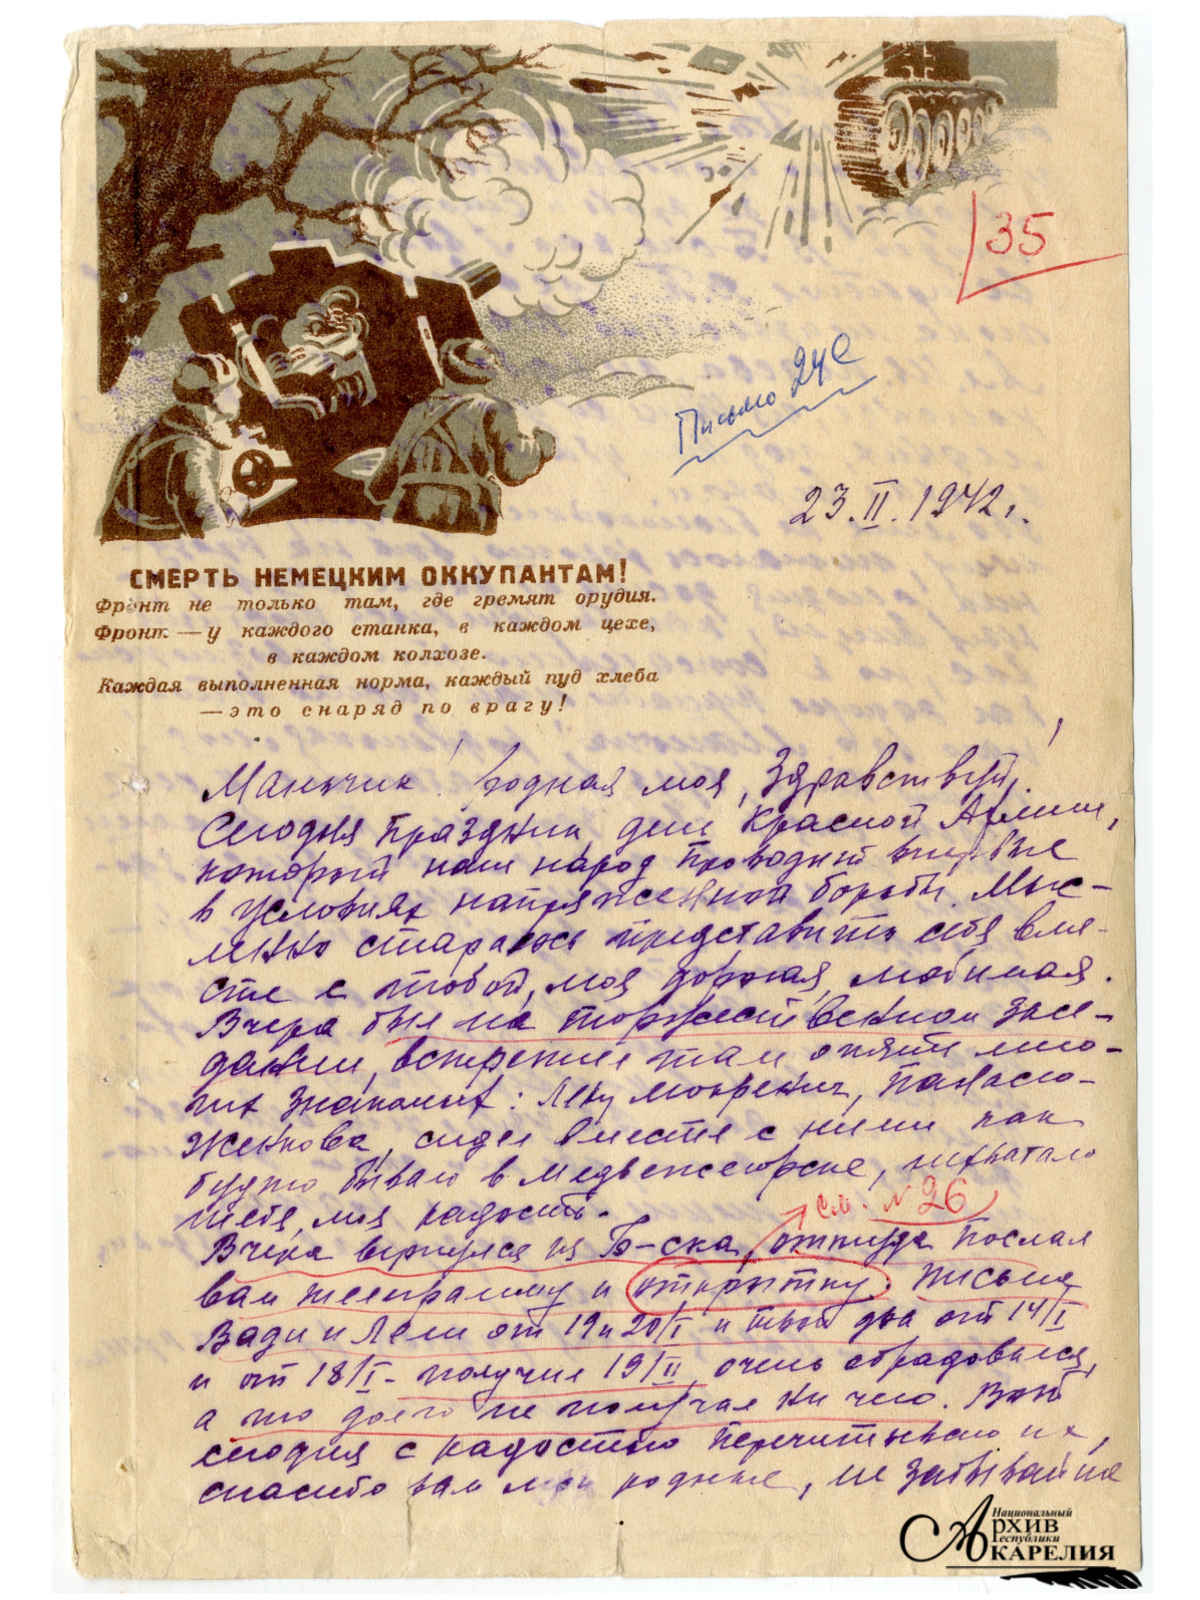 35
Письмо 24 с
23.II.1942 г.
СМЕРТЬ НЕМЕЦКИМ ОККУПАНТАМ!
Фронт не только там, где гремят орудия.
Фронт — у каждого станка, в каждом цехе,
в каждом колхозе.
Каждая выполненная норма, каждый пуд хлеба
— это снаряд по врагу!
Манючик! родная моя, здравствуй!
Сегодня праздник, день Красной Армии,
который наш народ проводит впервые
в условиях напряженной борьбы. Мыс-
ленно стараюсь представить себя вме-
сте с тобой, моя дорогая, любимая.
Вчера был на торжественном засе-
дании, встретил там опять мно-
гих знакомых: Лену Мокревич,
сидел вместе с ними как
будто бываю в Медвежегорске, нехватало
тебя, моя радость.
см. № 26
Вчера вернулся из Б-ска, откуда послал
вам телеграмму и открытку. Письма
Вади и Лели от 19 и 20/I и твои два от 14/I
и от 18/I - получил 19/II, очень обрадовался,
а то долго не получал ни чего. Вот
сегодня с радостью перечитываю их,
спасибо вам мои родные, не забывайте
Национальный
Архив
Республики
Карелия